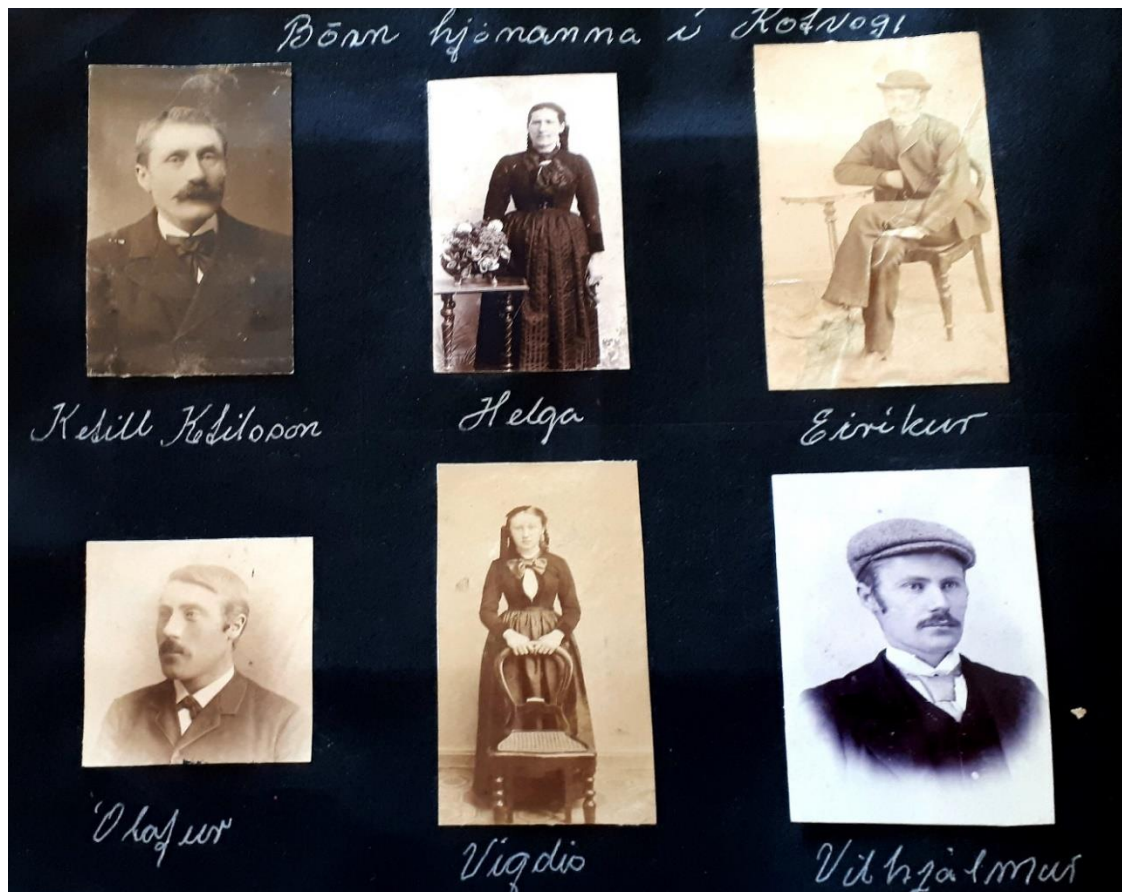 Börn hjónanna í Kotvogi
Ketill Ketilsson
Helga
Eiríkur
Ólafur
Vigdís
Vilhjálmur